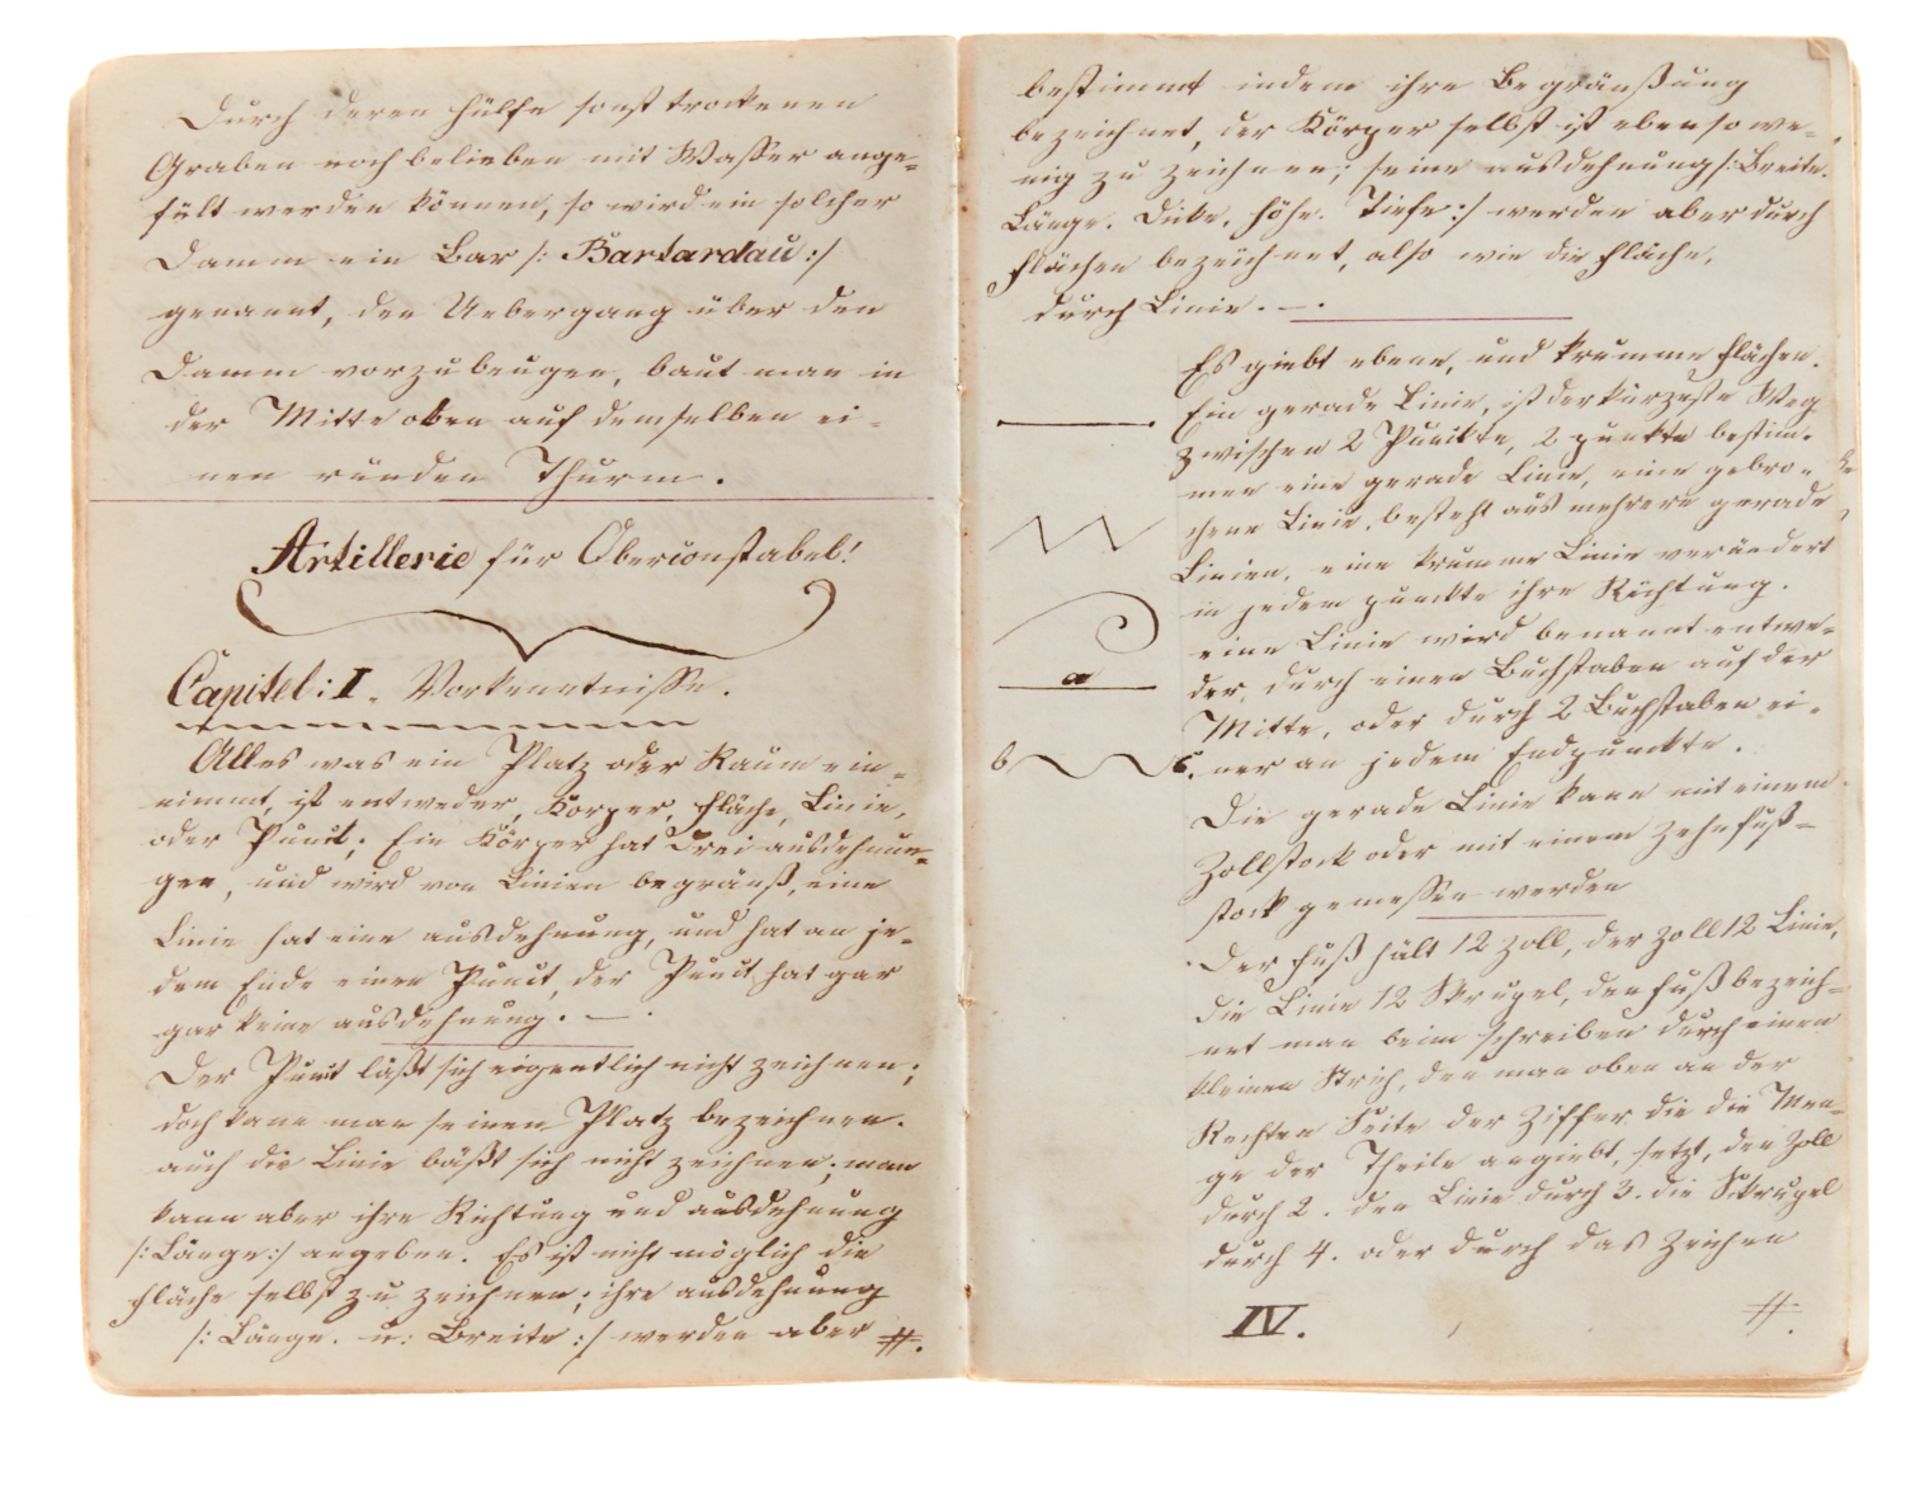 Durch deren Hülfe sonst trockenen
Graben nach belieben mit Wasser ange=
fült werden können, so wird ein solcher
Damm ein Bär /: Bartardau :/
genannt, den Uebergang über den
Damm vorzubeugen, baut man in
der Mitte oben auf demselben ei=
nen runden Thurm.
Artillerie für Oberconstabel!
Capitel: I. Vorkenntnisse.
Alles was ein Platz oder Raum ein=
nimmt, ist entweder, Korper, Fläche, Linie,
oder Punct; Ein Körper hat Drei ausdehnun=
gen, und wird von Linien begränß, eine
Linie hat eine ausdehnung, und hat an je=
dem Ende einen Punct, der Punct hat gar
gar keine ausdehnung. —.
Der Punct läßt sich eigentlich nicht zeichnen;
doch kann man seinen Platz bezeichnen.
auch die Linie läßt sich nicht zeichnen; man
kann aber ihre Richtung und ausdehnung
/: Länge :/ angeben. Es ist nicht möglich die
Fläche selbst zu zeichnen; ihre ausdehnung
/: Länge. u: Breite :/ werden aber #.
bestimmt indem ihre Begränßung
bezeichnet, der Körper selbst ist ebenso we=
nig zu zeichnen; seine ausdehnung /: Breite.
Länge. Dicke. Höhe. Tiefe :/ werden aber durch
Flächen bezeichnet, also wie die Fläche,
durch Linie. —.
Es giebt ebene, und krumme Flächen.
Ein gerade Linie, ist der kürzeste Weg
zwischen 2 Punckte, 2 punkte bestim=
men eine gerade Linie, eine gebro=
chene Linie, besteht aus mehrere gerade
Linien, eine krumme Linie verändert
in jedem punckte ihre Richtung.
eine Linie wird benannt entwe=
der, durch einen Buchstaben auf der
a
Mitte, oder durch 2 Buchstaben ei=
b c. ner an jedem Endpunckte.
Die gerade Linie kann mit einem
Zollstock oder mit einem Zehnfuß=
stock gemessen werden
Der Fuß hält 12 Zoll, der Zoll 12 Linie,
die Linie 12 Skrupel, den Fuß bezeich=
net man beim schreiben durch einen
kleinen Strich, den man oben an der
Rechten Seite der Ziffer die die Men=
ge der Theile angiebt, setzt, den Zoll
durch 2. den Linie durch 3. die Skrupel
durch 4. oder durch das Zeichen
IV. #.